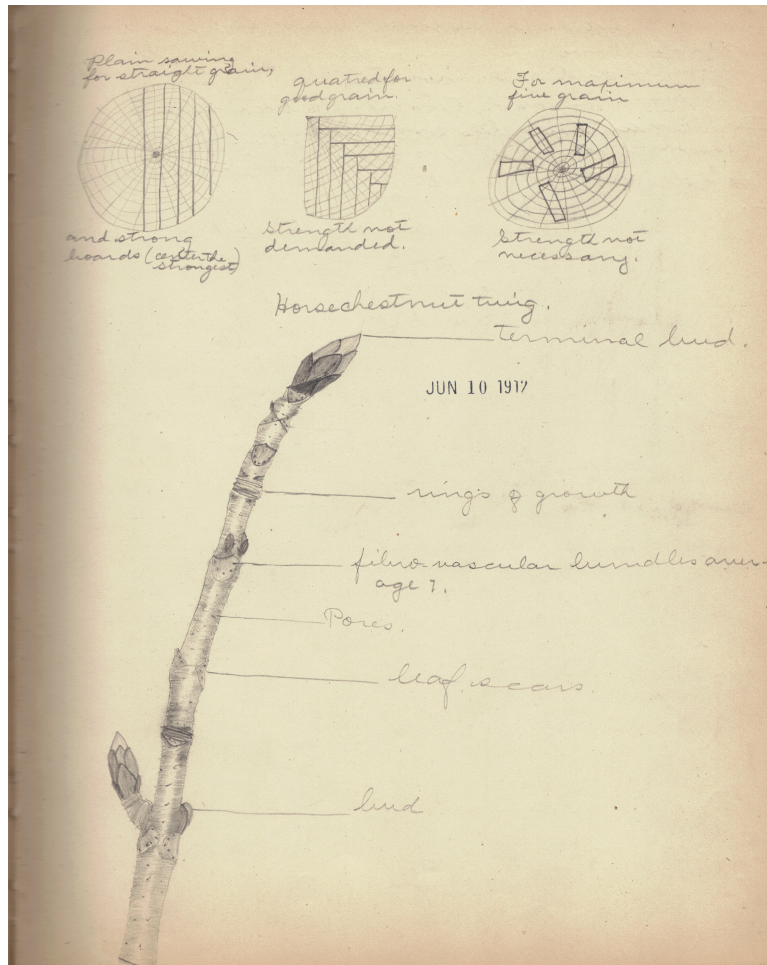 Plain sawing
for straight grain,
and strong
boards (center the
strongest)
quatred for
good grain.
Strength not
demanded.
For maximum
fine grain
Strength not
necessary.
Horsechestnut twig.
terminal bud.
JUN 10 1912
rings of growth
fibro-vascular bundles aver-
age 7.
Pores.
leaf scars.
bud